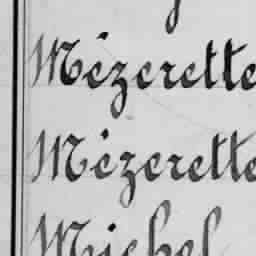 Mézerette
Mézerette
Michel